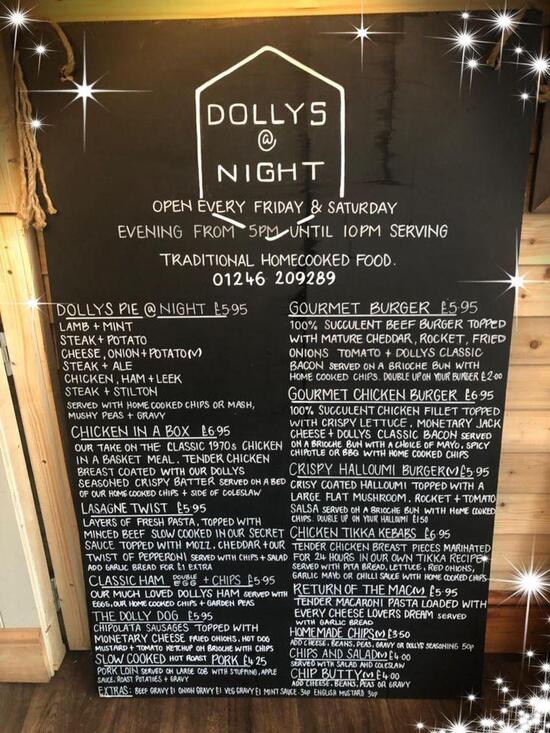 DOLLYS
@
NIGHT
OPEN EVERY FRIDAY & SATURDAY
EVENING FROM 5PM UNTIL 10PM SERVING
TRADITIONAL HOMECOOKED FOOD.
01246 209289
DOLLYS PIE @ NIGHT £5.95
LAMB + MINT
STEAK + POTATO
CHEESE, ONION + POTATO (V)
STEAK + ALE
CHICKEN, HAM + LEEK
STEAK + STILTON
SERVED WITH HOME COOKED CHIPS OR MASH,
MUSHY PEAS + GRAVY
CHICKEN IN A BOX £6.95
OUR TAKE ON THE CLASSIC 1970s CHICKEN
IN A BASKET MEAL. TENDER CHICKEN
BREAST COATED WITH OUR DOLLYS
SEASONED CRISPY BATTER SERVED ON A BED
OF OUR HOME COOKED CHIPS + SIDE OF COLESLAW
LASAGNE TWIST £5.95
LAYERS OF FRESH PASTA, TOPPED WITH
MINCED BEEF SLOW COOKED IN OUR SECRET
SAUCE TOPPED WITH MOZZ, CHEDDAR + OUR
TWIST OF PEPPERONI SERVED WITH CHIPS + SALAD
ADD GARLIC BREAD FOR £1 EXTRA
CLASSIC HAM DOUBLE EGG + CHIPS £5.95
OUR MUCH LOVED DOLLYS HAM SERVED WITH
EGGS, OUR HOME COOKED CHIPS + GARDEN PEAS
THE DOLLY DOG £5.95
CHIPOLATA SAUSAGES TOPPED WITH
MONETARY CHEESE FRIED ONIONS, HOT DOG
MUSTARD + TOMATO KETCHUP ON BRIOCHE WITH CHIPS
SLOW COOKED HOT ROAST PORK £4.25
PORK LOIN SERVED ON LARGE COB WITH STUFFING, APPLE
SAUCE, ROAST POTATOES + GRAVY
EXTRAS: BEEF GRAVY £1 ONION GRAVY £1 VEG GRAVY £1 MINT SAUCE 30p ENGLISH MUSTARD 30p
GOURMET BURGER £5.95
100% SUCCULENT BEEF BURGER TOPPED
WITH MATURE CHEDDAR, ROCKET, FRIED
ONIONS TOMATO + DOLLYS CLASSIC
BACON SERVED ON A BRIOCHE BUN WITH
HOME COOKED CHIPS. DOUBLE UP ON YOUR BURGER £2.00
GOURMET CHICKEN BURGER £6.95
100% SUCCULENT CHICKEN FILLET TOPPED
WITH CRISPY LETTUCE, MONETARY JACK
CHEESE + DOLLYS CLASSIC BACON SERVED
ON A BRIOCHE BUN WITH A CHOICE OF MAYO, SPICY
CHIPOTLE OR BBG WITH HOME COOKED CHIPS
CRISPY HALLOUMI BURGER (V) £5.95
CRISY COATED HALLOUMI TOPPED WITH A
LARGE FLAT MUSHROOM, ROCKET + TOMATO
SALSA SERVED ON A BRIOCHE BUN WITH HOME COOKED
CHIPS. DOUBLE UP ON YOUR HALLOUMI £1.50
CHICKEN TIKKA KEBABS £6.95
TENDER CHICKEN BREAST PIECES MARINATED
FOR 24 HOURS IN OUR OWN TIKKA RECIPE
SERVED WITH PITA BREAD, LETTUCE, RED ONIONS,
GARLIC MAYO OR CHILLI SAUCE WITH HOME COOKED CHIPS
RETURN OF THE MAC (V) £5.95
TENDER MACARONI PASTA LOADED WITH
EVERY CHEESE LOVERS DREAM SERVED
WITH GARLIC BREAD
HOMEMADE CHIPS (V) £3.50
ADD CHEESE, BEANS, PEAS, GRAVY OR DOLLYS SEASONING 50p
CHIPS AND SALAD (V) £4.00
SERVED WITH SALAD AND COLESLAW
CHIP BUTTY (V) £4.00
ADD CHEESE, BEANS, PEAS OR GRAVY